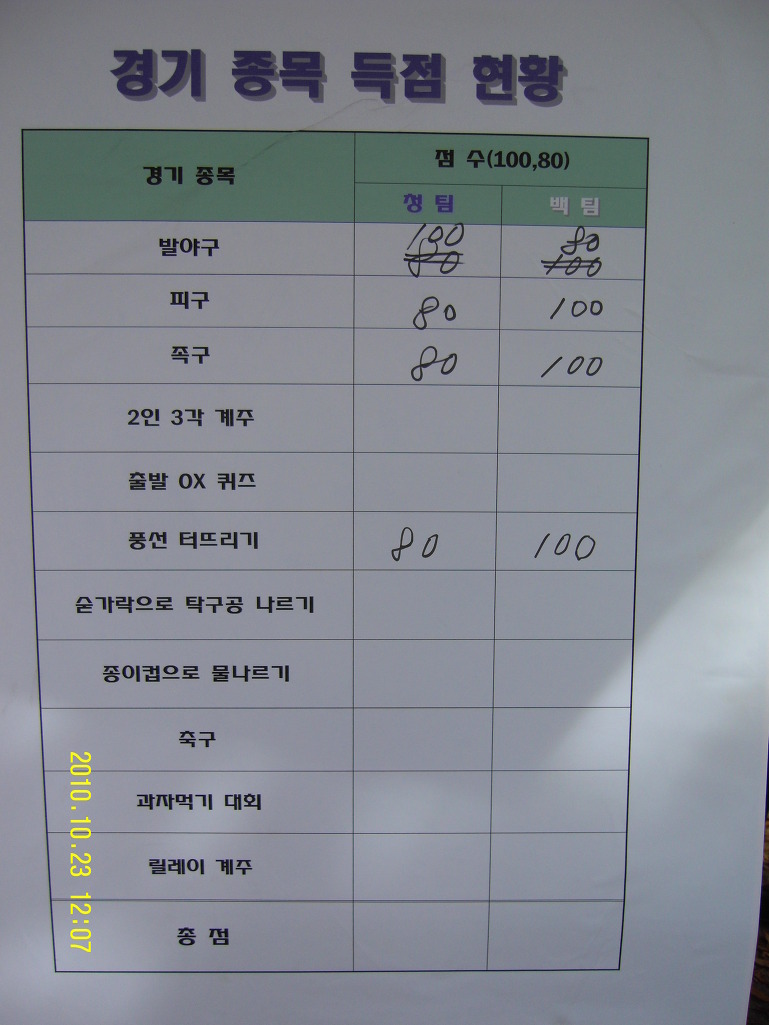 경기 종목 득점 현황
경기 종목 점 수(100,80)
청 팀 백 팀
발야구 100 80
80 100
피구 80 100
족구 80 100
2인 3각 계주
출발 OX 퀴즈
풍선 터뜨리기 80 100
숟가락으로 탁구공 나르기
종이컵으로 물나르기
축구
과자먹기 대회
릴레이 계주
총 점
2010.10.23 12:07